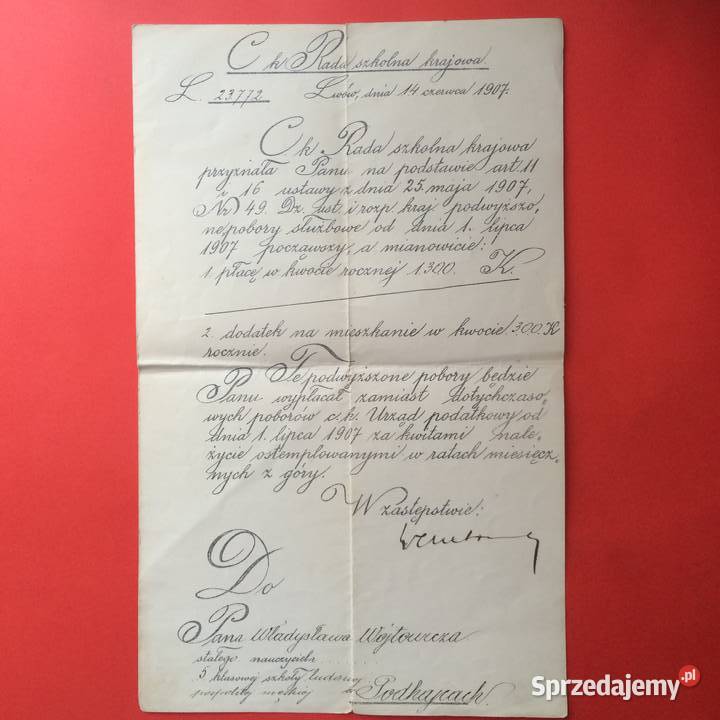 C k Rada szkolna krajowa
L. 23772 Lwów, dnia 14 czerwca 1907.
C k Rada szkolna krajowa
przyznała Panu na podstawie art. 11
i 16 ustawy z dnia 25. maja 1907,
Nr 49. Dz. ust. i rozp. kraj. podwyższo,
ne pobory służbowe od dnia 1. lipca
1907 począwszy, a mianowicie:
1 płacę w kwocie rocznej 1300. K.
2. dodatek na mieszkanie w kwocie 300 K
rocznie.
Te podwyższone pobory będzie
Panu wypłacał zamiast dotychczaso,
wych poborów c.k. Urząd podatkowy od
dnia 1. lipca 1907 za kwitami nale,
życie ostemplowanymi w ratach miesięcz,
nych z góry.
W zastępstwie:
Do
Pana Władysława Wójtowicza
stałego nauczyciela
5 klasowej szkoły ludowej
pospolitej męskiej w Podhajcach.
Sprzedajemy.pl